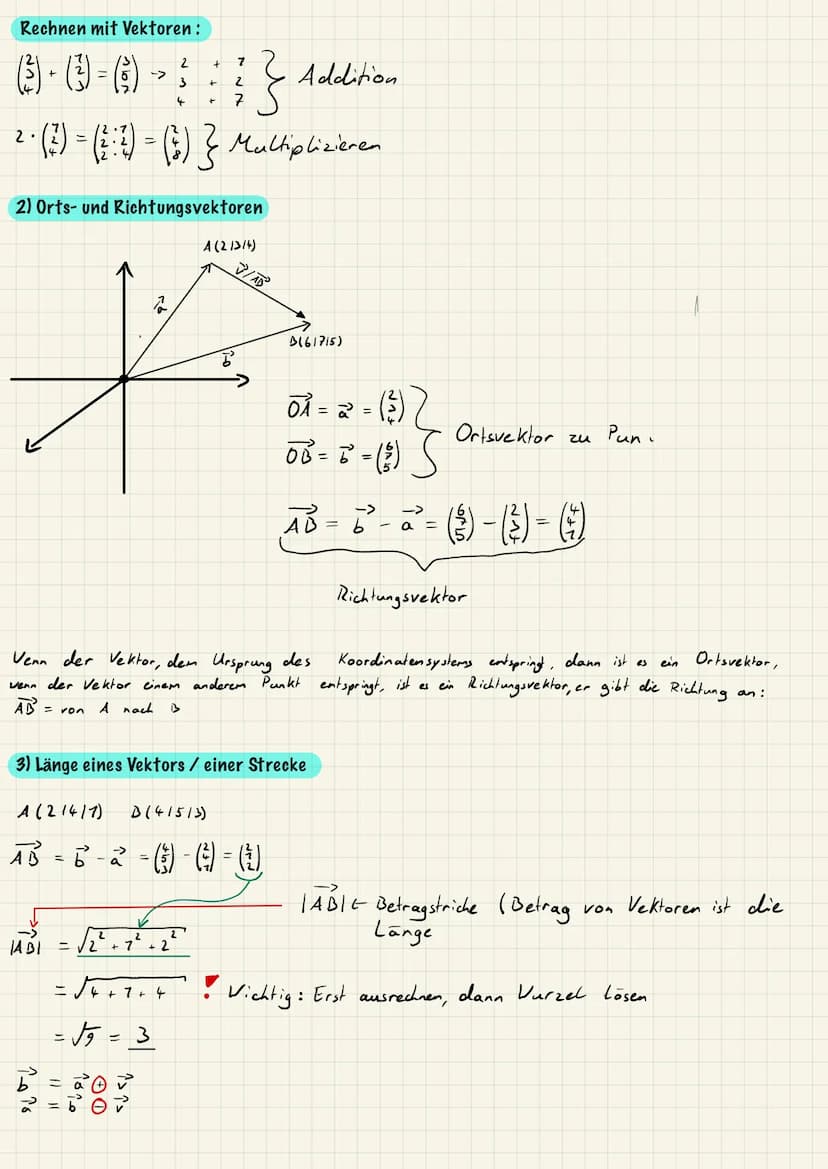 Rechnen mit Vektoren:
(2 3 4) + (1 2 3) = (3 5 7) → 2 + 1
3 + 2
4 + 7
} Addition
2 · (1 2 4) = (2·1 2·2 2·4) = (2 4 8) } Multiplizieren
2) Orts- und Richtungsvektoren
A(2|3|4)
v⃗/AB⃗
a⃗
B(6|7|5)
b⃗
OA⃗ = a⃗ = (2 3 4)
OB⃗ = b⃗ = (6 7 5)
} Ortsvektor zu Pun.
AB⃗ = b⃗ - a⃗ = (6 7 5) - (2 3 4) = (4 4 1)
Richtungsvektor
Wenn der Vektor, dem Ursprung des Koordinatensystems entspringt, dann ist es ein Ortsvektor,
wenn der Vektor einem anderem Punkt entspringt, ist es ein Richtungsvektor, er gibt die Richtung an:
AB⃗ = von A nach B
3) Länge eines Vektors / einer Strecke
A(2|4|1) B(4|5|3)
AB⃗ = b⃗ - a⃗ = (4 5 3) - (2 4 1) = (2 1 2)
|AB⃗| ← Betragstriche (Betrag von Vektoren ist die
Länge
|AB⃗| = √2² + 1² + 2²
= √4 + 1 + 4 ! Wichtig: Erst ausrechnen, dann Wurzel lösen
= √9 = 3
b⃗ = a⃗ ⊕ v⃗
a⃗ = b⃗ ⊖ v⃗